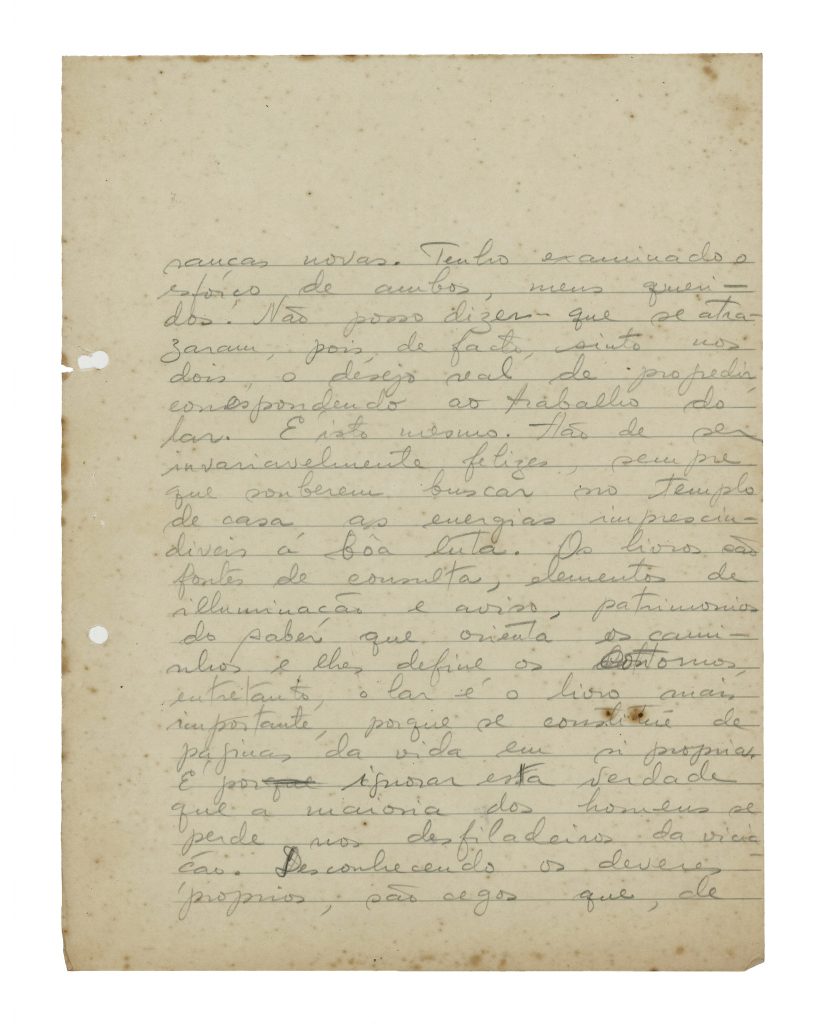 ranças novas. Tenho examinado o
esforço de ambos, meus queri-
dos. Não posso dizer que se atra-
zaram, pois, de facto, sinto nos
dois, o desejo real de progredir,
correspondendo ao trabalho do
lar. É isto mesmo. Hão de ser
invariavelmente felizes, sempre
que souberem buscar no templo
de casa as energias imprescin-
diveis á bôa luta. Os livros são
fontes de consulta, elementos de
illuminação e aviso, patrimonios
do saber que orienta os cami-
nhos e lhes define os contornos,
entretanto, o lar é o livro mais
importante, porque se constitúe de
páginas da vida em si propria.
E por ignorar esta verdade
que a maioria dos homens se
perde nos desfiladeiros da vicia-
ção. Desconhecendo os deveres
proprios, são cegos que, de